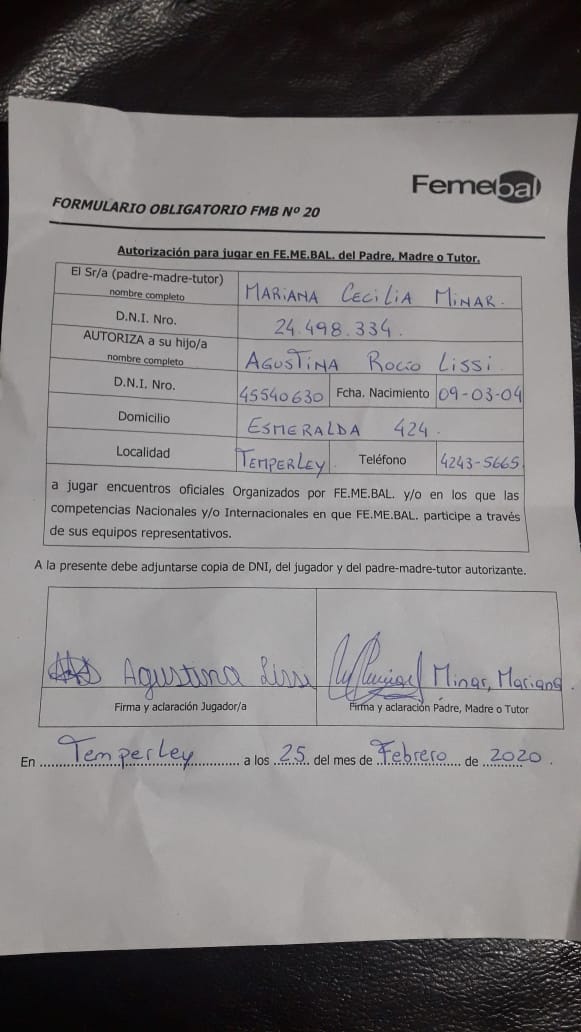 Femebal
FORMULARIO OBLIGATORIO FMB Nº 20
Autorización para jugar en FE.ME.BAL. del Padre, Madre o Tutor.
El Sr/a (padre-madre-tutor) nombre completo MARIANA CECILIA MINAR.
D.N.I. Nro. 24.498.334.
AUTORIZA a su hijo/a nombre completo AGUSTINA ROCIO LISSI
D.N.I. Nro. 45540630 Fcha. Nacimiento 09-03-04
Domicilio ESMERALDA 424.
Localidad TEMPERLEY Teléfono 4243-5665
a jugar encuentros oficiales Organizados por FE.ME.BAL. y/o en los que las
competencias Nacionales y/o Internacionales en que FE.ME.BAL. participe a través
de sus equipos representativos.
A la presente debe adjuntarse copia de DNI, del jugador y del padre-madre-tutor autorizante.
Agustina Lissi Minar, Mariana.
Firma y aclaración Jugador/a Firma y aclaración Padre, Madre o Tutor
En Temperley a los 25 del mes de Febrero de 2020.